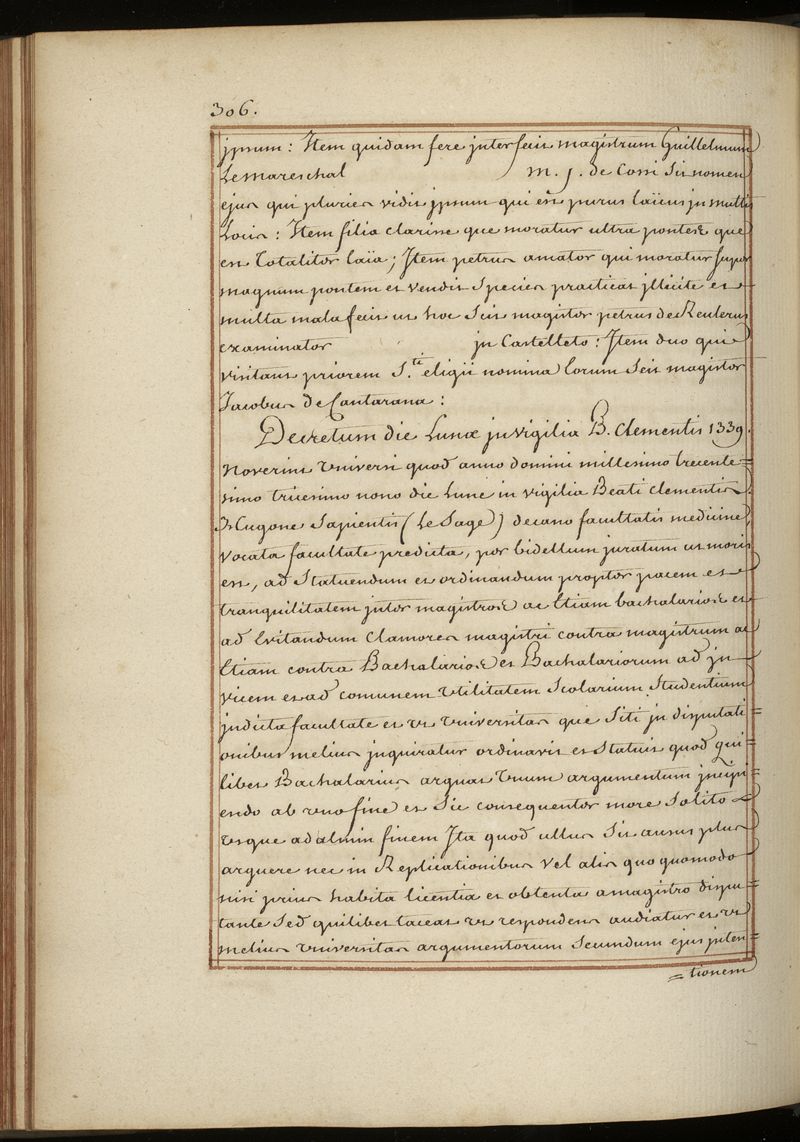 306.
jpsum: Item quidam fere jnterfecit magistrum Guillelmum
Le Mareschal m. j. de Corri scit nomen
ejus qui pluries vidit jpsum qui est purus laïcus jn multis
Locis: Item filia clarisse que moratur ultra pontes que
est totaliter laïa; Item petrus amator qui moratur supor
magnum pontem et vendit species practicat jllicite et
multa mala fecit ut hoc scit magister petrus de Reulerus
examinator jn Castelleto: Item duo qui
visitant priorem S.ti eligii nomina lorum scit magister
Jacobus De Cantarana:
Decretum die Lunæ jn vigilia B. Clementis 1339.
Noverint Universi quod anno domini millesimo trecente=
simo tricesimo nono die Lune in vigilia Beati clementis
Hugone Sapientis (Le Sage) decano facultatis medicine,
vocata facultate predicta, per bidellum juratum ut moris
est, ad Statuendum et ordinandum propter pacem et
tranquilitatem jnter magistros ac Etiam bachalarios et
ad Evitandum clamores magistri contra magistrum ac
Etiam contra Bachalarios et Bachalariorum ad jn
vicem et ad comunem Utilitatem Scolarium Studentium
jn dicta facultate et ut Universitas que Siti jn disputati=
onibus melius jnquiratur ordinavit et Statuit quod qui=
libet Bachalarius arguat Unum argumentum jncipi=
endo ab uno fine et Sic consequenter more Solito
Usque ad alium finem Ita quod ullus Sit ausus plus
arguere nec in Replicationibus vel alis quo quomodo
nisi prius habita licentia et obtenta a magistro dispu=
tante Sed quilibet taceat ut respondens audiatur et ut
melius Universitas argumentorum Secundum ejus jnten=
=tionem